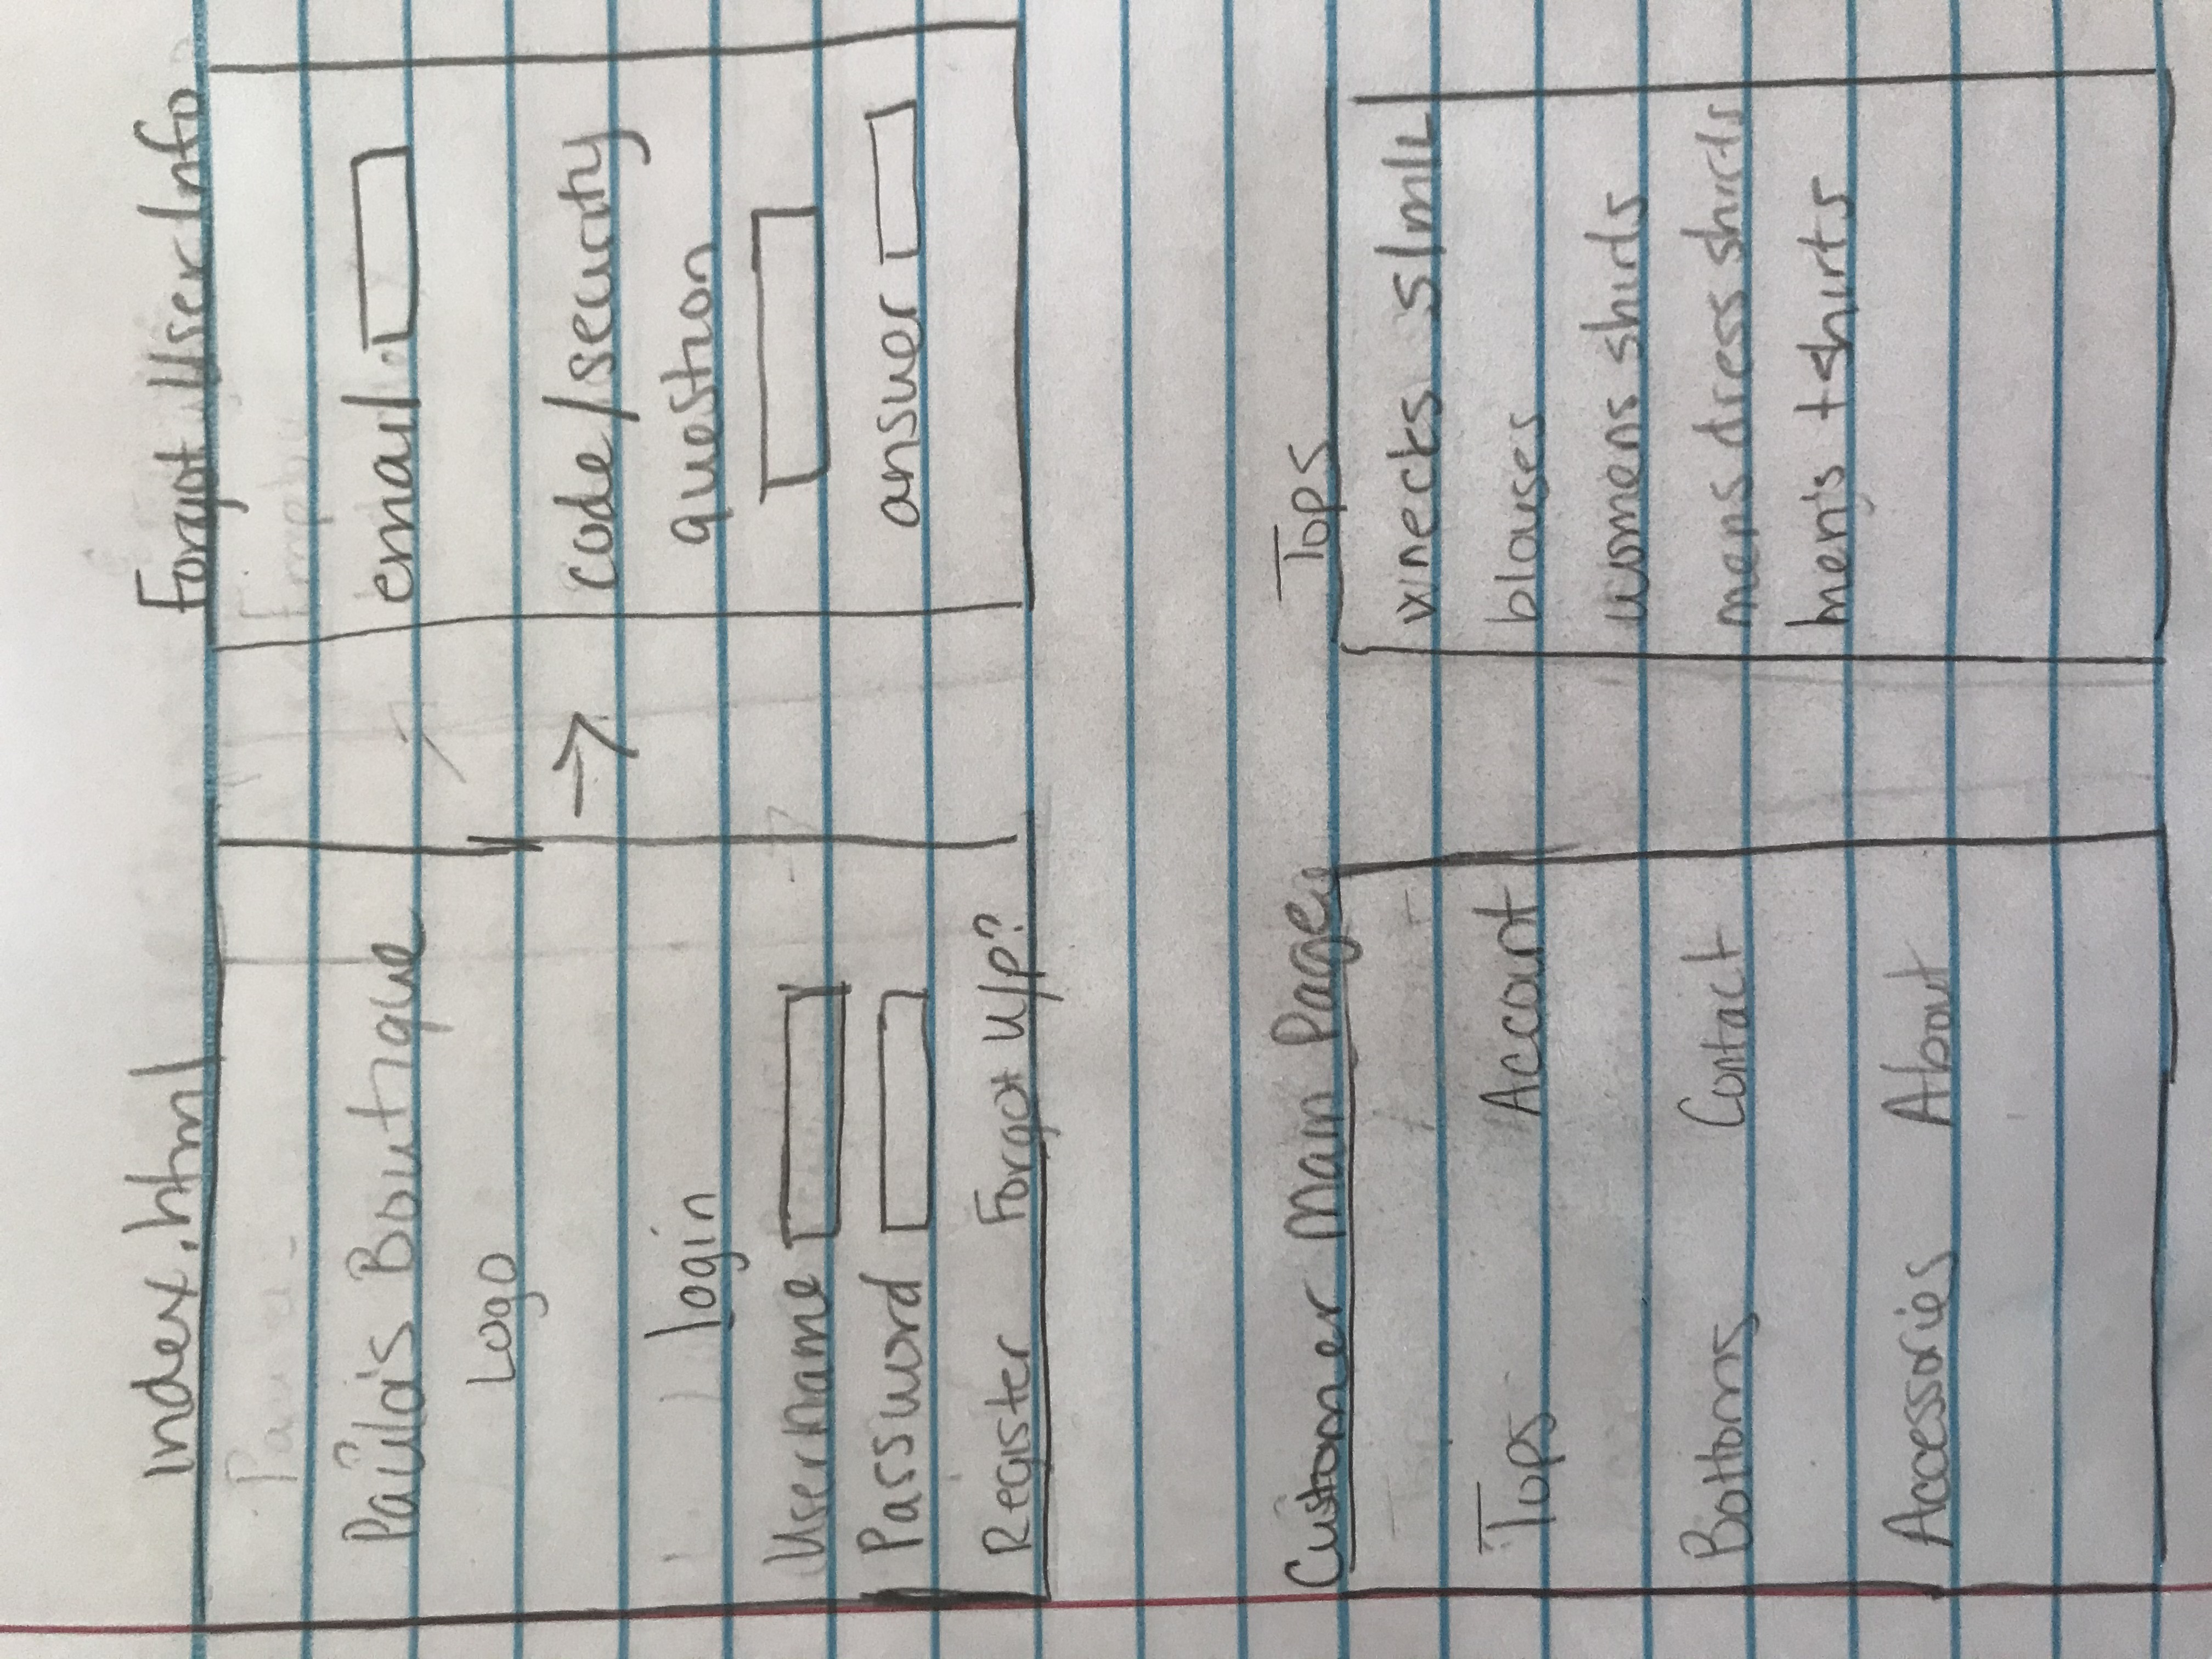 Index.html
Paula's Boutique
Logo
login
Username
Password
Register Forgot U/P?
Forgot User Info
email
code/security
question
answer
Customer Main Page
Tops Account
Bottoms Contact
Accessories About
Tops
vnecks S|m|L
blouses
womens shirts
mens dress shirts
men's tshirts